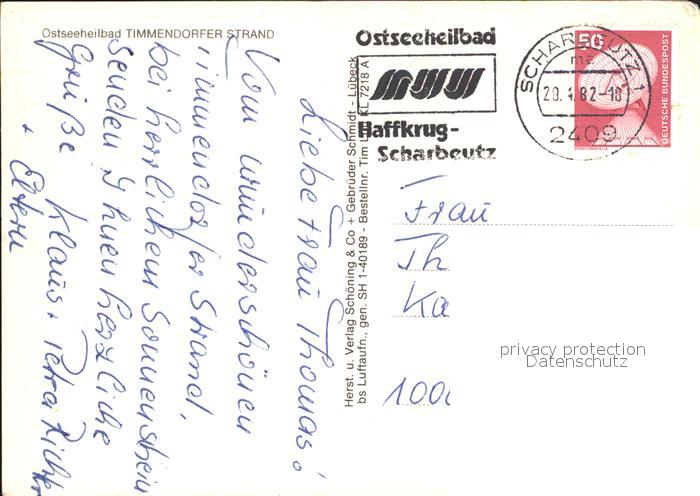 Ostseeheilbad TIMMENDORFER STRAND
Liebe Frau Thomas!
Vom wunderschönen
Timmendorfer Strand,
bei herrlichen Sonnenschein
senden Ihnen herzliche
Grüße Klaus + Petra Richter
+ Eltern
Herst. u. Verlag Schöning & Co + Gebrüder Schmidt - Lübeck
bs Luftaufn., gen. SH 1-40189 - Bestellnr. Tim KL 7218 A
Ostseeheilbad
Haffkrug-
Scharbeutz
SCHARBEUTZ 1
29.4.82-18
2409
50
DEUTSCHE BUNDESPOST
Frau
Th
Ka
1000
privacy protection
Datenschutz